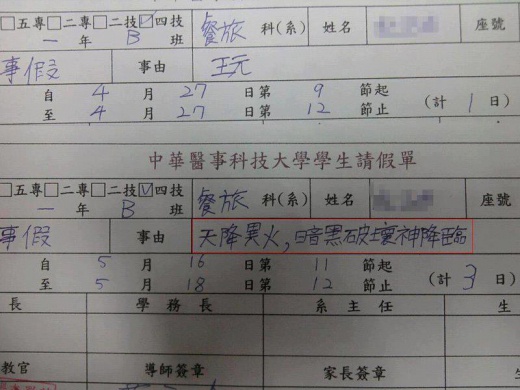 □五專□二專□二技☑四技 餐旅 科(系) 姓名 座號
一 年 B 班
事假 事由 玨
自 4 月 27 日第 9 節起
至 4 月 27 日第 12 節止 (計 1 日)
中華醫事科技大學學生請假單
□五專□二專□二技☑四技 餐旅 科(系) 姓名 座號
一 年 B 班
事假 事由 天降異火,暗黑破壞神降臨
自 5 月 16 日第 11 節起
至 5 月 18 日第 12 節止 (計 3 日)
長 學務長 系主任 生
教官 導師簽章 家長簽章 生